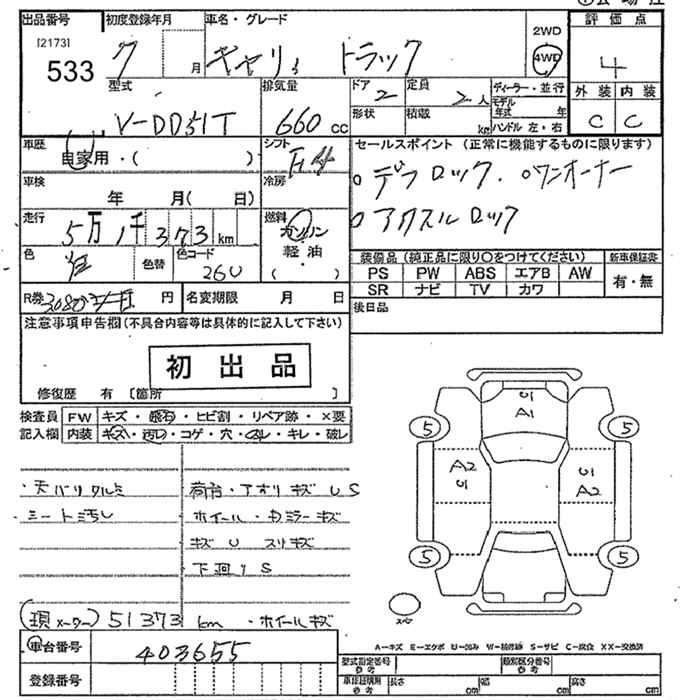 出品番号 初度登録年月 車名・グレード 2WD 評価点
[2173] 533 7 月 キャリィ トラック 4WD 4
型式 排気量 ドア 2 定員 2人 ディーラー・並行 外装 内装
V-DD51T 660 cc 形状 積載 km モデル年式 年 ハンドル 左・右 C C
車歴 自家用・( ) シフト F4 セールスポイント (正常に機能するものに限ります)
車検 年 月( 日) 冷房 デフロック・ワンオーナー
走行 5万1千373km 燃料 ガソリン 軽油 ( ) アクスルロック
色 色替 色コード 26U
装備品 (純正品に限り○をつけてください) 新車保証書
PS PW ABS エアB AW 有・無
SR ナビ TV カワ
R券 円 名変期限 月 日 後日品
注意事項申告欄 (不具合内容等は具体的に記入して下さい)
初出品
修復歴 有 [箇所 ]
検査員 FW キズ・飛石・ヒビ割・リペア跡・×要
記入欄 内装 キズ・汚レ・コゲ・穴・スレ・キレ・破レ
U1
A1
5 5
A2 U1
U1 A2
5 5
スペア
・天バリタルミ 荷台・アオリキズUS
・シート汚レ ホイール・ミラーキズ
キズU スリキズ
下回りS
(現メーター) 51373 km ・ホイールキズ
車台番号 403655
登録番号
A-キズ E-エクボ U-凹み W-補修跡 S-サビ C-腐食 XX-交換済
型式指定番号 参考 類別区分番号 参考
車検証積用 参考 長さ cm 幅 cm 高さ cm